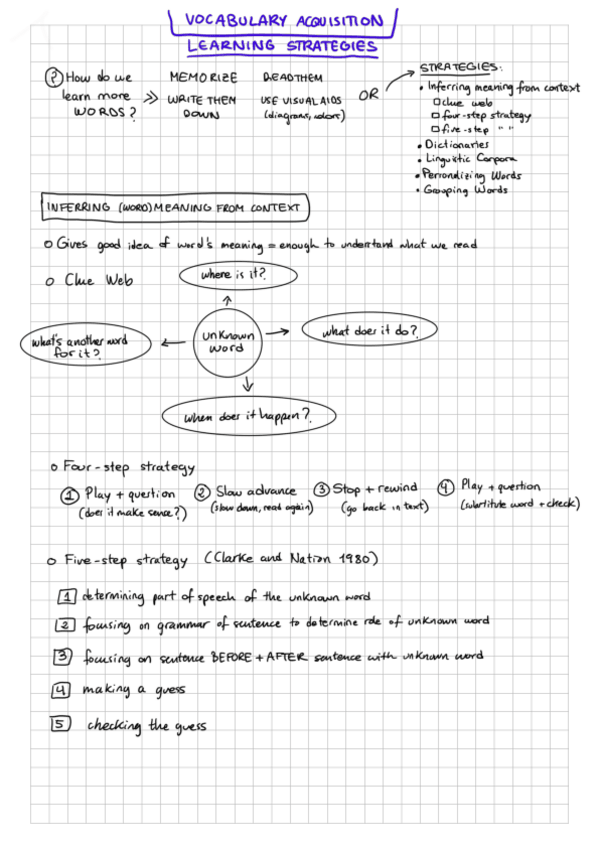 VOCABULARY ACQUISITION
LEARNING STRATEGIES
? How do we learn more WORDS? >>
MEMORIZE
READ THEM
WRITE THEM DOWN
USE VISUAL AIDS
(diagrams, colors)
OR
STRATEGIES:
• Inferring meaning from context
□ clue web
□ four-step strategy
□ five-step " "
• Dictionaries
• Linguistic Corpora
• Personalizing Words
• Grouping Words
INFERRING (WORD) MEANING FROM CONTEXT
o Gives good idea of word's meaning = enough to understand what we read
o Clue Web
where is it?
what's another word for it?
unknown word
what does it do?
when does it happen?
o Four-step strategy
① Play + question
(does it make sense?)
② Slow advance
(slow down, read again)
③ Stop + rewind
(go back in text)
④ Play + question
(substitute word + check)
o Five-step strategy (Clarke and Nation 1980)
1 determining part of speech of the unknown word
2 focusing on grammar of sentence to determine role of unknown word
3 focusing on sentence BEFORE + AFTER sentence with unknown word
4 making a guess
5 checking the guess